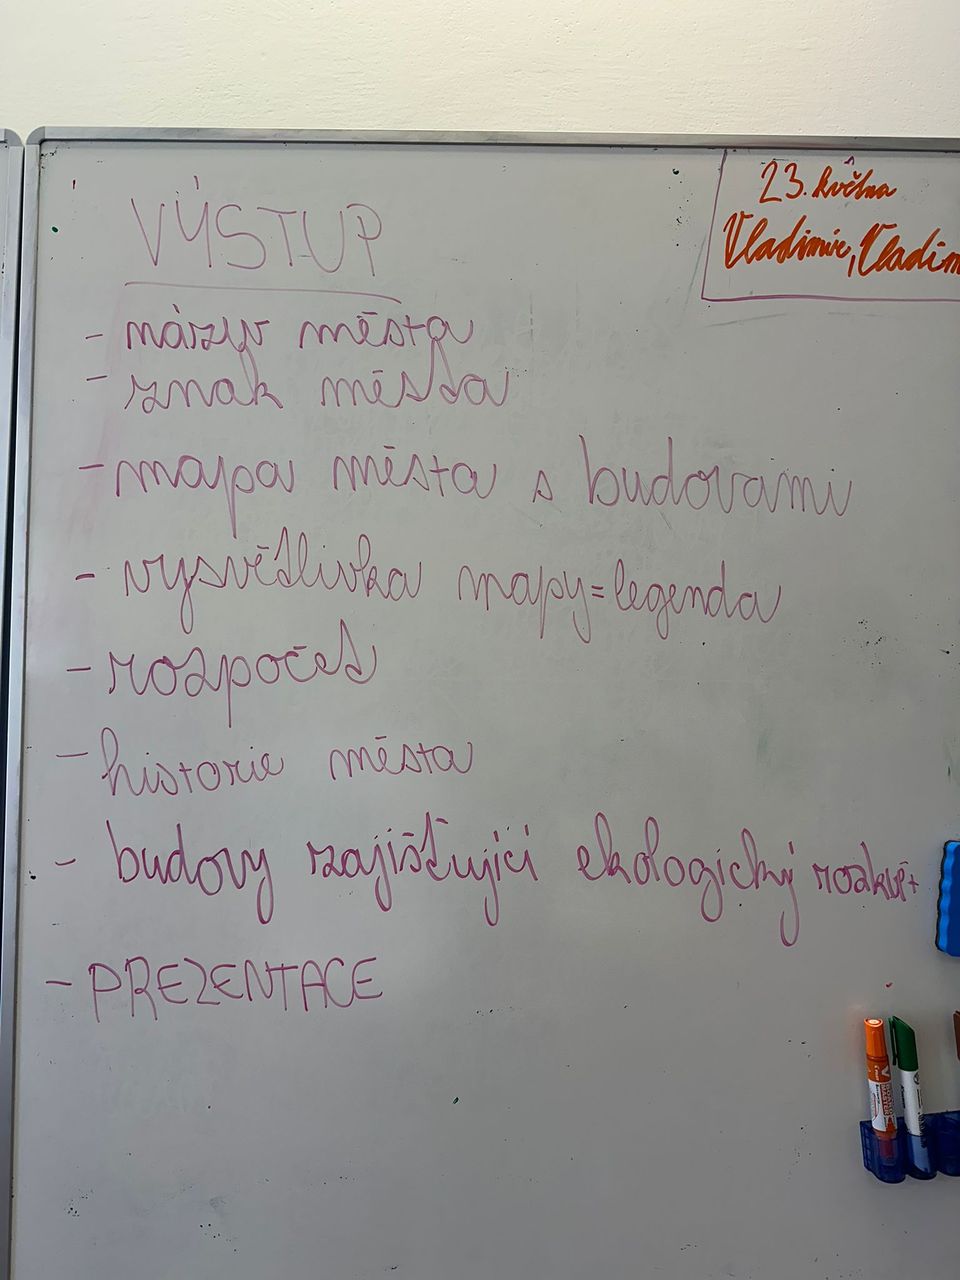 VÝSTUP
23. května
Vladimír, Vladim
- název města
- znak města
- mapa města s budovami
- vysvětlivka mapy=legenda
- rozpočet
- historie města
- budovy zajišťující ekologický
- PREZENTACE